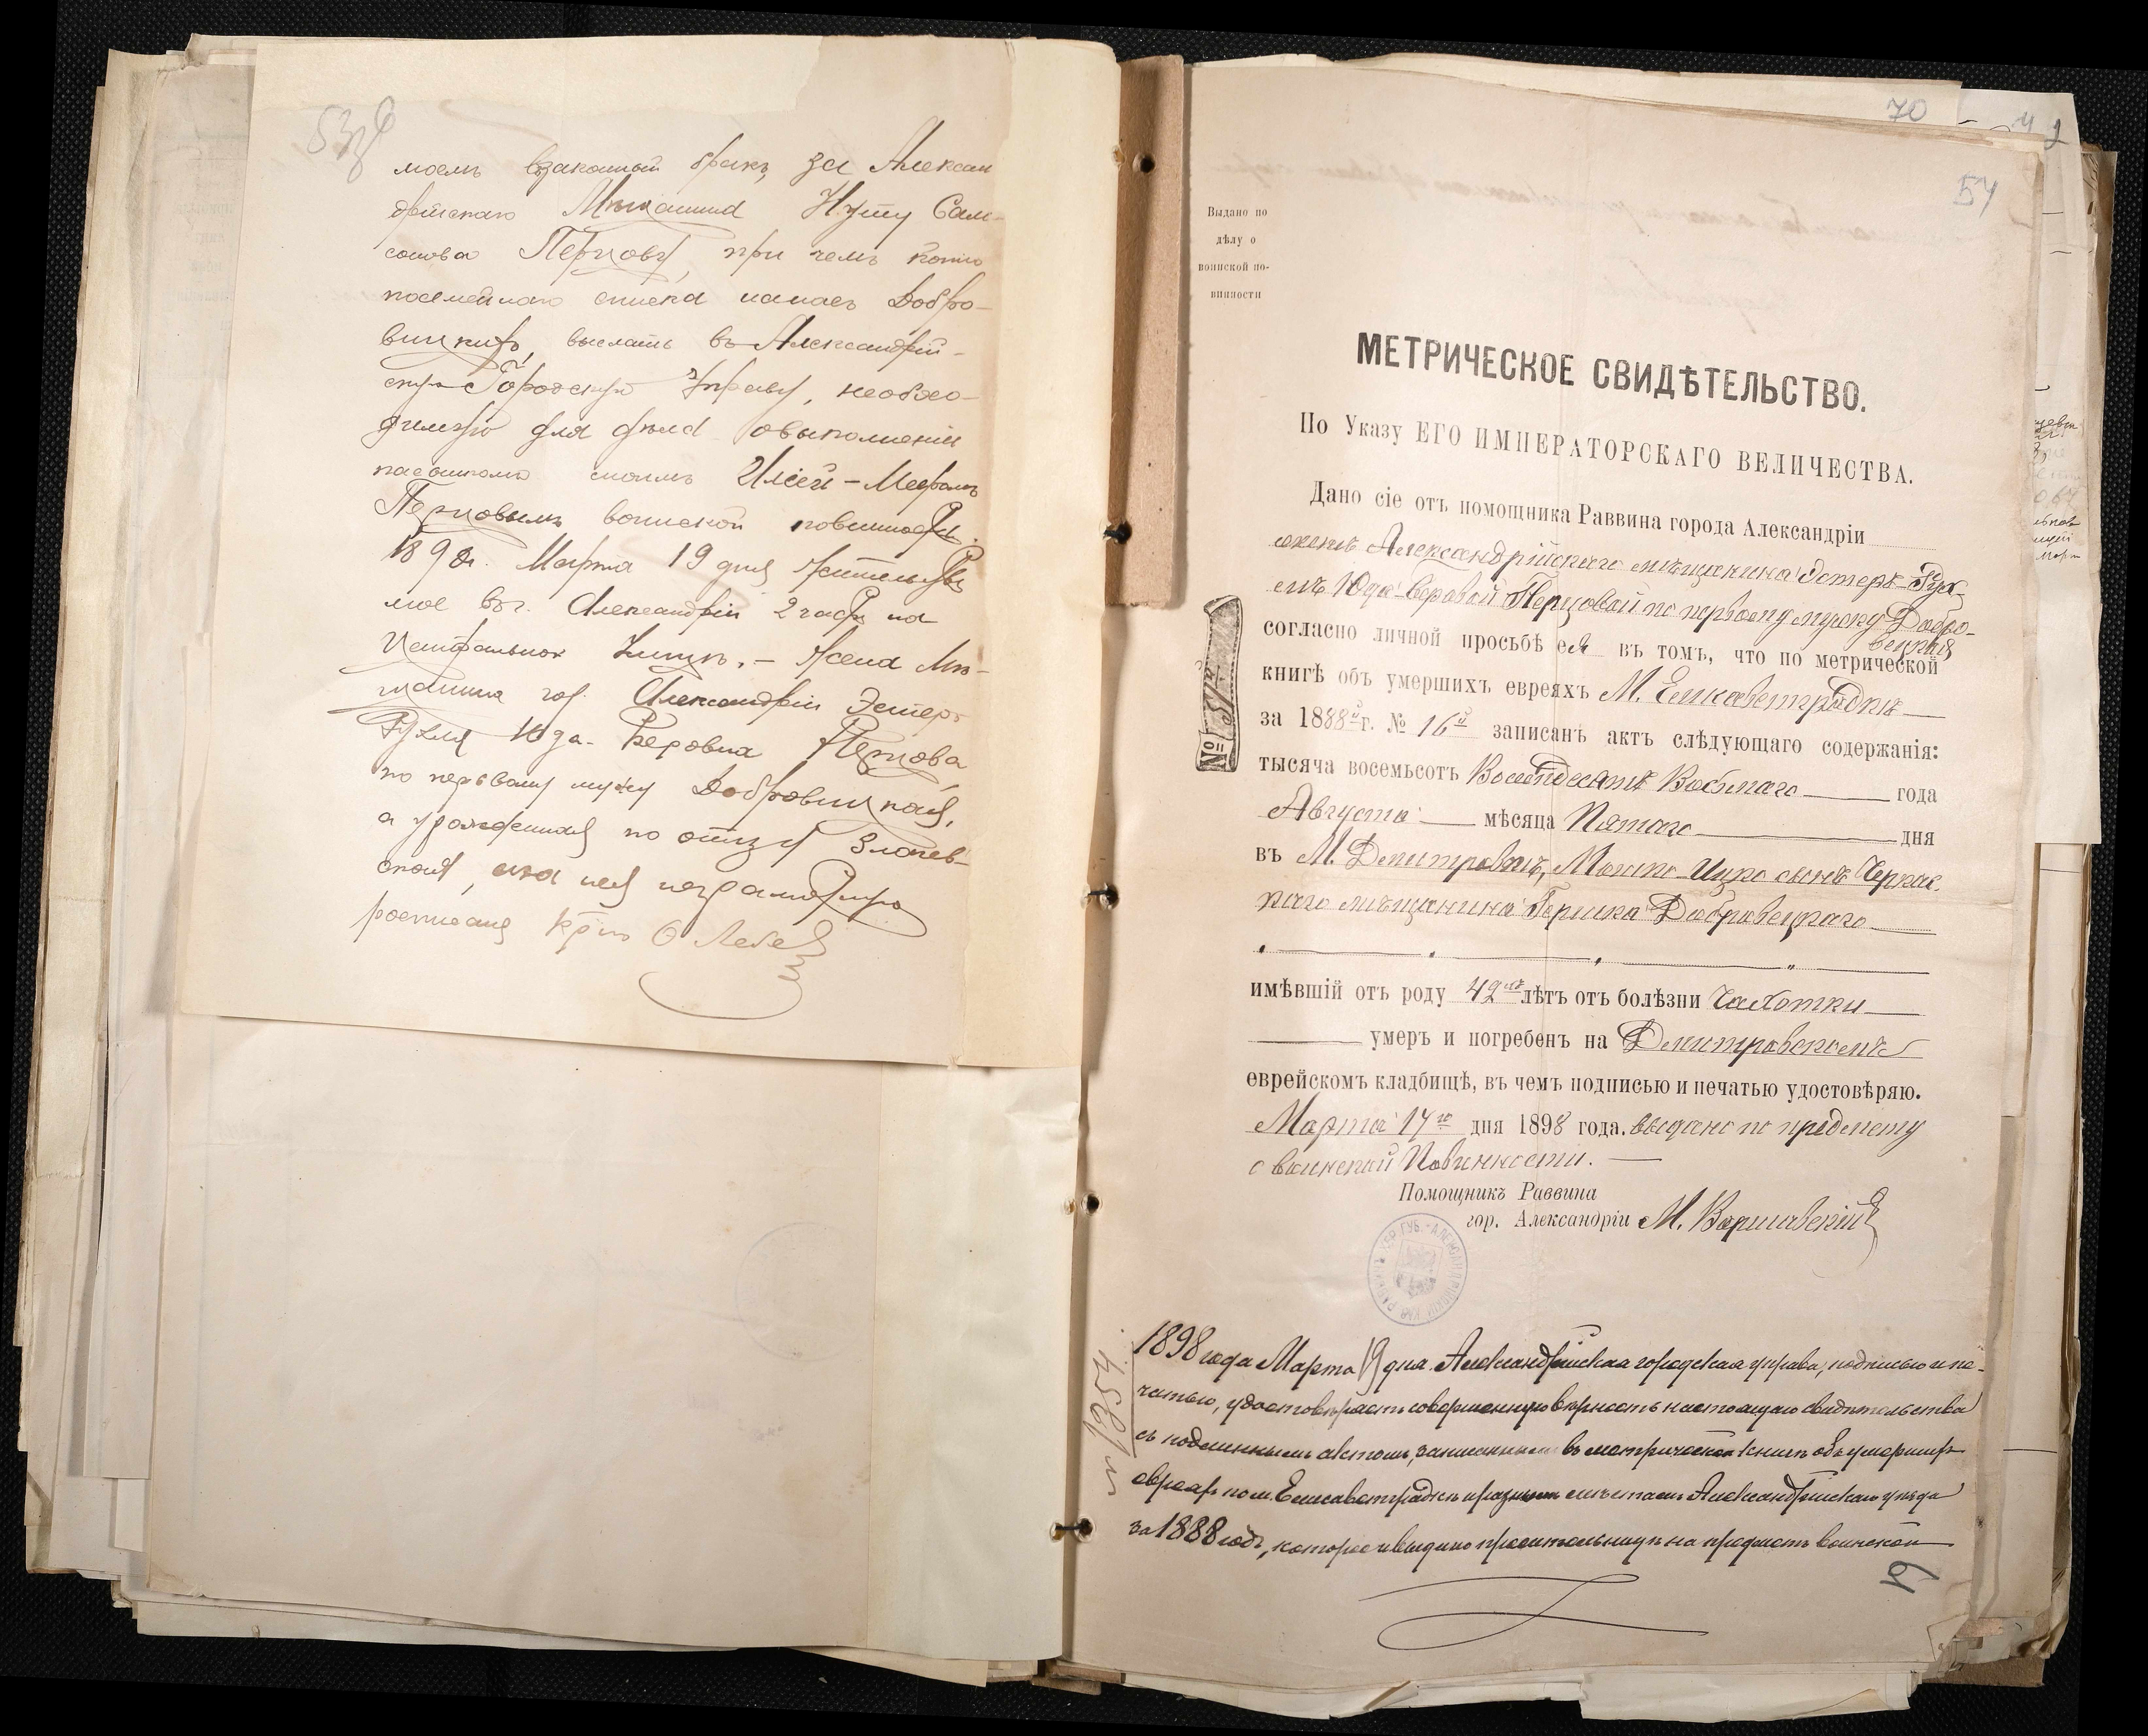 53об
моемъ взаконный бракъ, за Алексан
дрійскаго Мѣщанина Нуту Сам-
сонова Перцову, при чемъ копію
посемейнаго списка нашего Добро-
вицкихъ, выслать въ Александрій-
скую Городскую Управу, необхо-
димую для дѣла овыполненіи
пасынкомъ моимъ
Перцовымъ воинской повинности.
1898г. Марта 19 дня Жительство
мое въ г. Александріи 2 части на
Центральной улицѣ. – Жена Мѣ-
щанина гор. Александріи Эстеръ
Рухля Юда-Беровна Перцова
по первому мужу Добровицкая,
а урожденная по отцу Злочев-
ская, ана нея неграмотную
росписался
70
54
Выдано по
дѣлу о
воинской по-
винности
МЕТРИЧЕСКОЕ СВИДѢТЕЛЬСТВО.
По Указу ЕГО ИМПЕРАТОРСКАГО ВЕЛИЧЕСТВА.
Дано сіе отъ помощника Раввина города Александріи
женѣ Александрійскаго мѣщанина Эстеръ-Рух-
лѣ Юда-Беровой Перцовой по первому мужу Добро-
вецкая
согласно личной просьбѣ ея въ томъ, что по метрической
книгѣ объ умершихъ евреяхъ М. Елисаветградкѣ
за 1888й г. № 16й записанъ актъ слѣдующаго содержанія:
тысяча восемьсотъ Восемдесятъ Восьмаго года
Августа мѣсяца Пятаго дня
въ М. Дмитровкѣ, Мошко-Ицко сынъ Черкас-
каго мѣщанина Гершка Добровецкаго
имѣвшій отъ роду 42 лѣтъ отъ болѣзни Чахотки
умеръ и погребенъ на Дмитровскомъ
еврейскомъ кладбищѣ, въ чемъ подписью и печатью удостовѣряю.
Марта 17го дня 1898 года. выдано по предмету
о воинской Повинности.
Помощникъ Раввина
гор. Александріи М. Варшавскій
№
1898 года Марта 19 дня. Александрійская городская управа, подписью и пе-
чатью, удостовѣряетъ совершенную вѣрность настоящаго свидѣтельства
съ подлиннымъ актомъ, записаннымъ въ метрической книгѣ объ умершихъ
евреяхъ по м. Елисаветградкѣ и разнымъ мѣстамъ Александрійскаго уѣзда
за 1888 годъ, которое и выдано просительницѣ на предметъ воинской
19